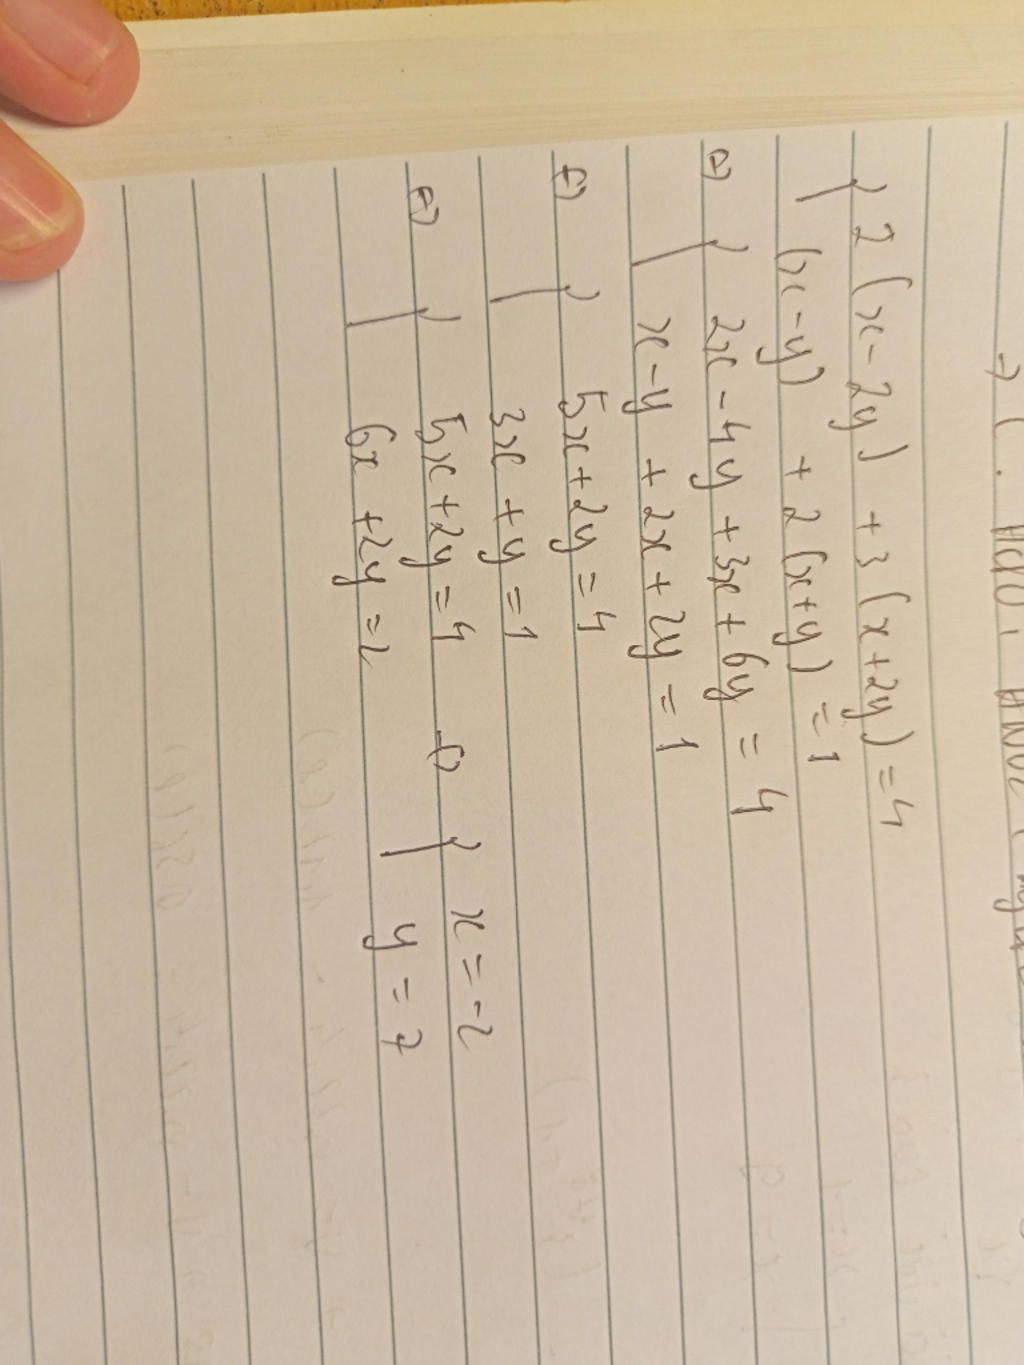 2(x-2y) +3(x+2y)=4
(x-y) + 2(x+y) =1
2x-4y+3x+6y = 4
x-y + 2x+2y = 1
5x+2y=4
3x+y=1
5x+2y=4 x=-2
6x+2y=2 y=7